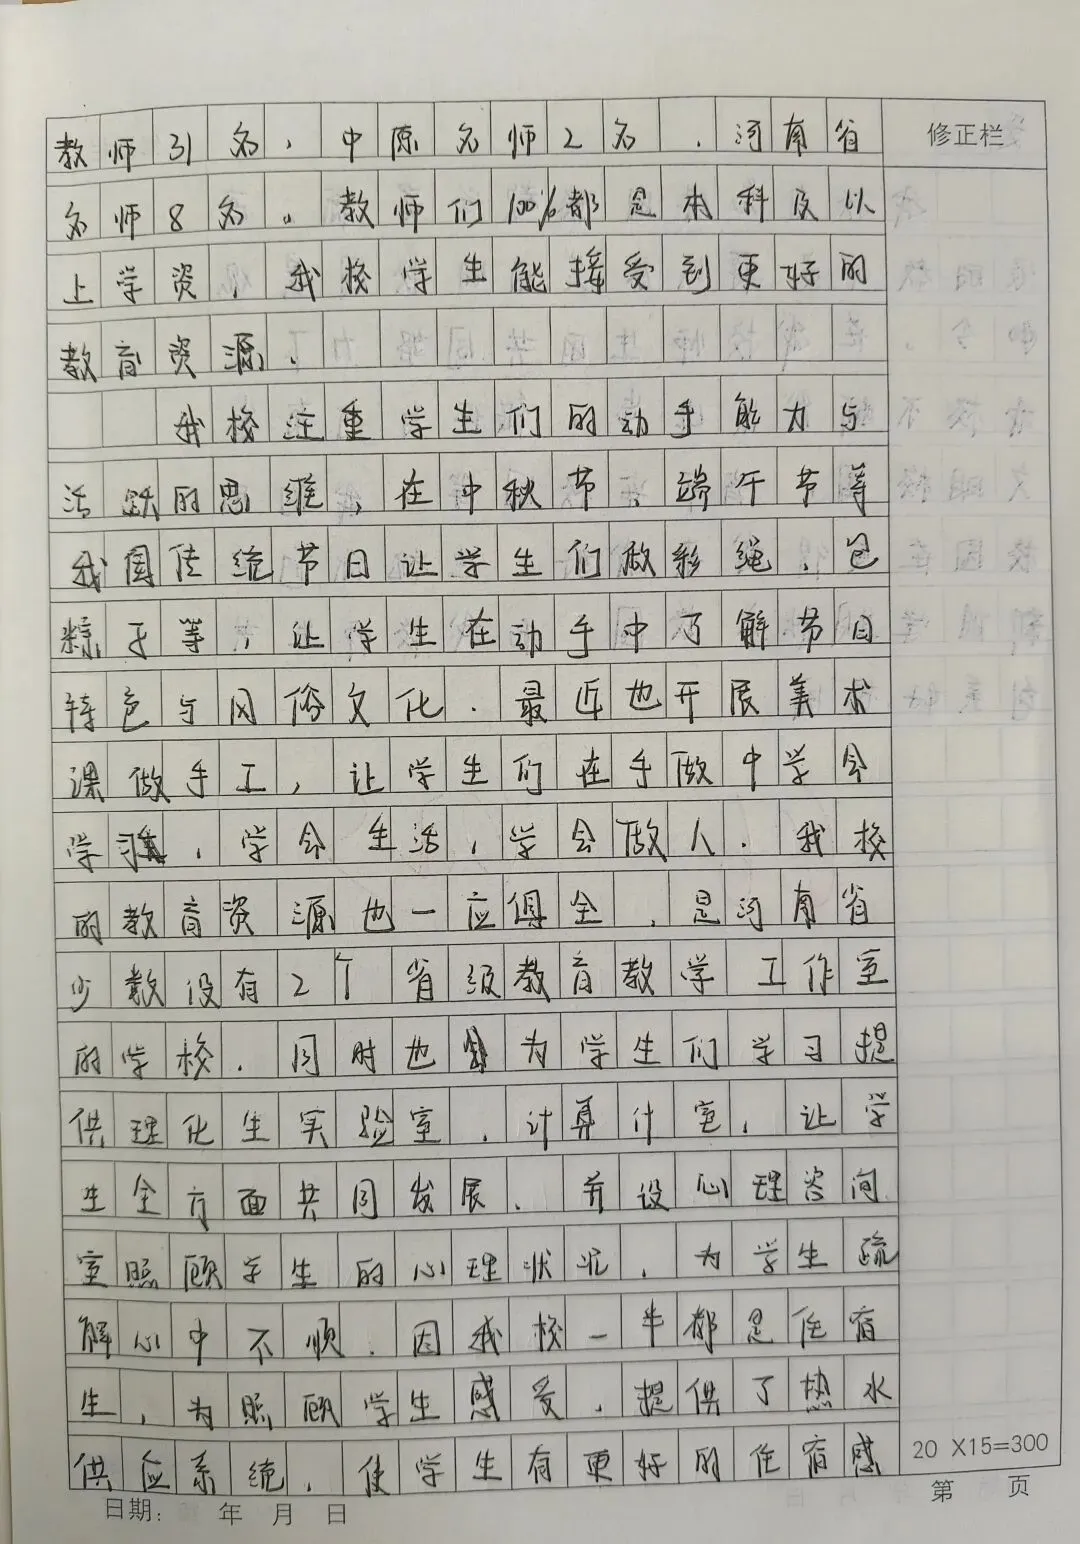 教师31名,中原名师2名,河南省
名师8名。教师们100%都是本科及以
上学资,我校学生能接受到更好的
教育资源.
我校注重学生们的动手能力与
活跃的思维,在中秋节、端午节等
我国传统节日让学生们做彩绳、包
粽子等,让学生在动手中了解节日
特色与风俗文化.最近也开展美术
课做手工,让学生们在手做中学会
学习,学会生活,学会做人.我校
的教育资源也一应俱全,是河南省
少数设有2个省级教育教学工作室
的学校.同时也为学生们学习提
供理化生实验室,计算计室,让学
生全方面共同发展.并设心理咨询
室照顾学生的心理状况,为学生疏
解心中不顺.因我校一半都是住宿
生,为照顾学生感受,提供了热水
供应系统,使学生有更好的住宿感
修正栏
20 X15=300
第 页
日期: 年 月 日